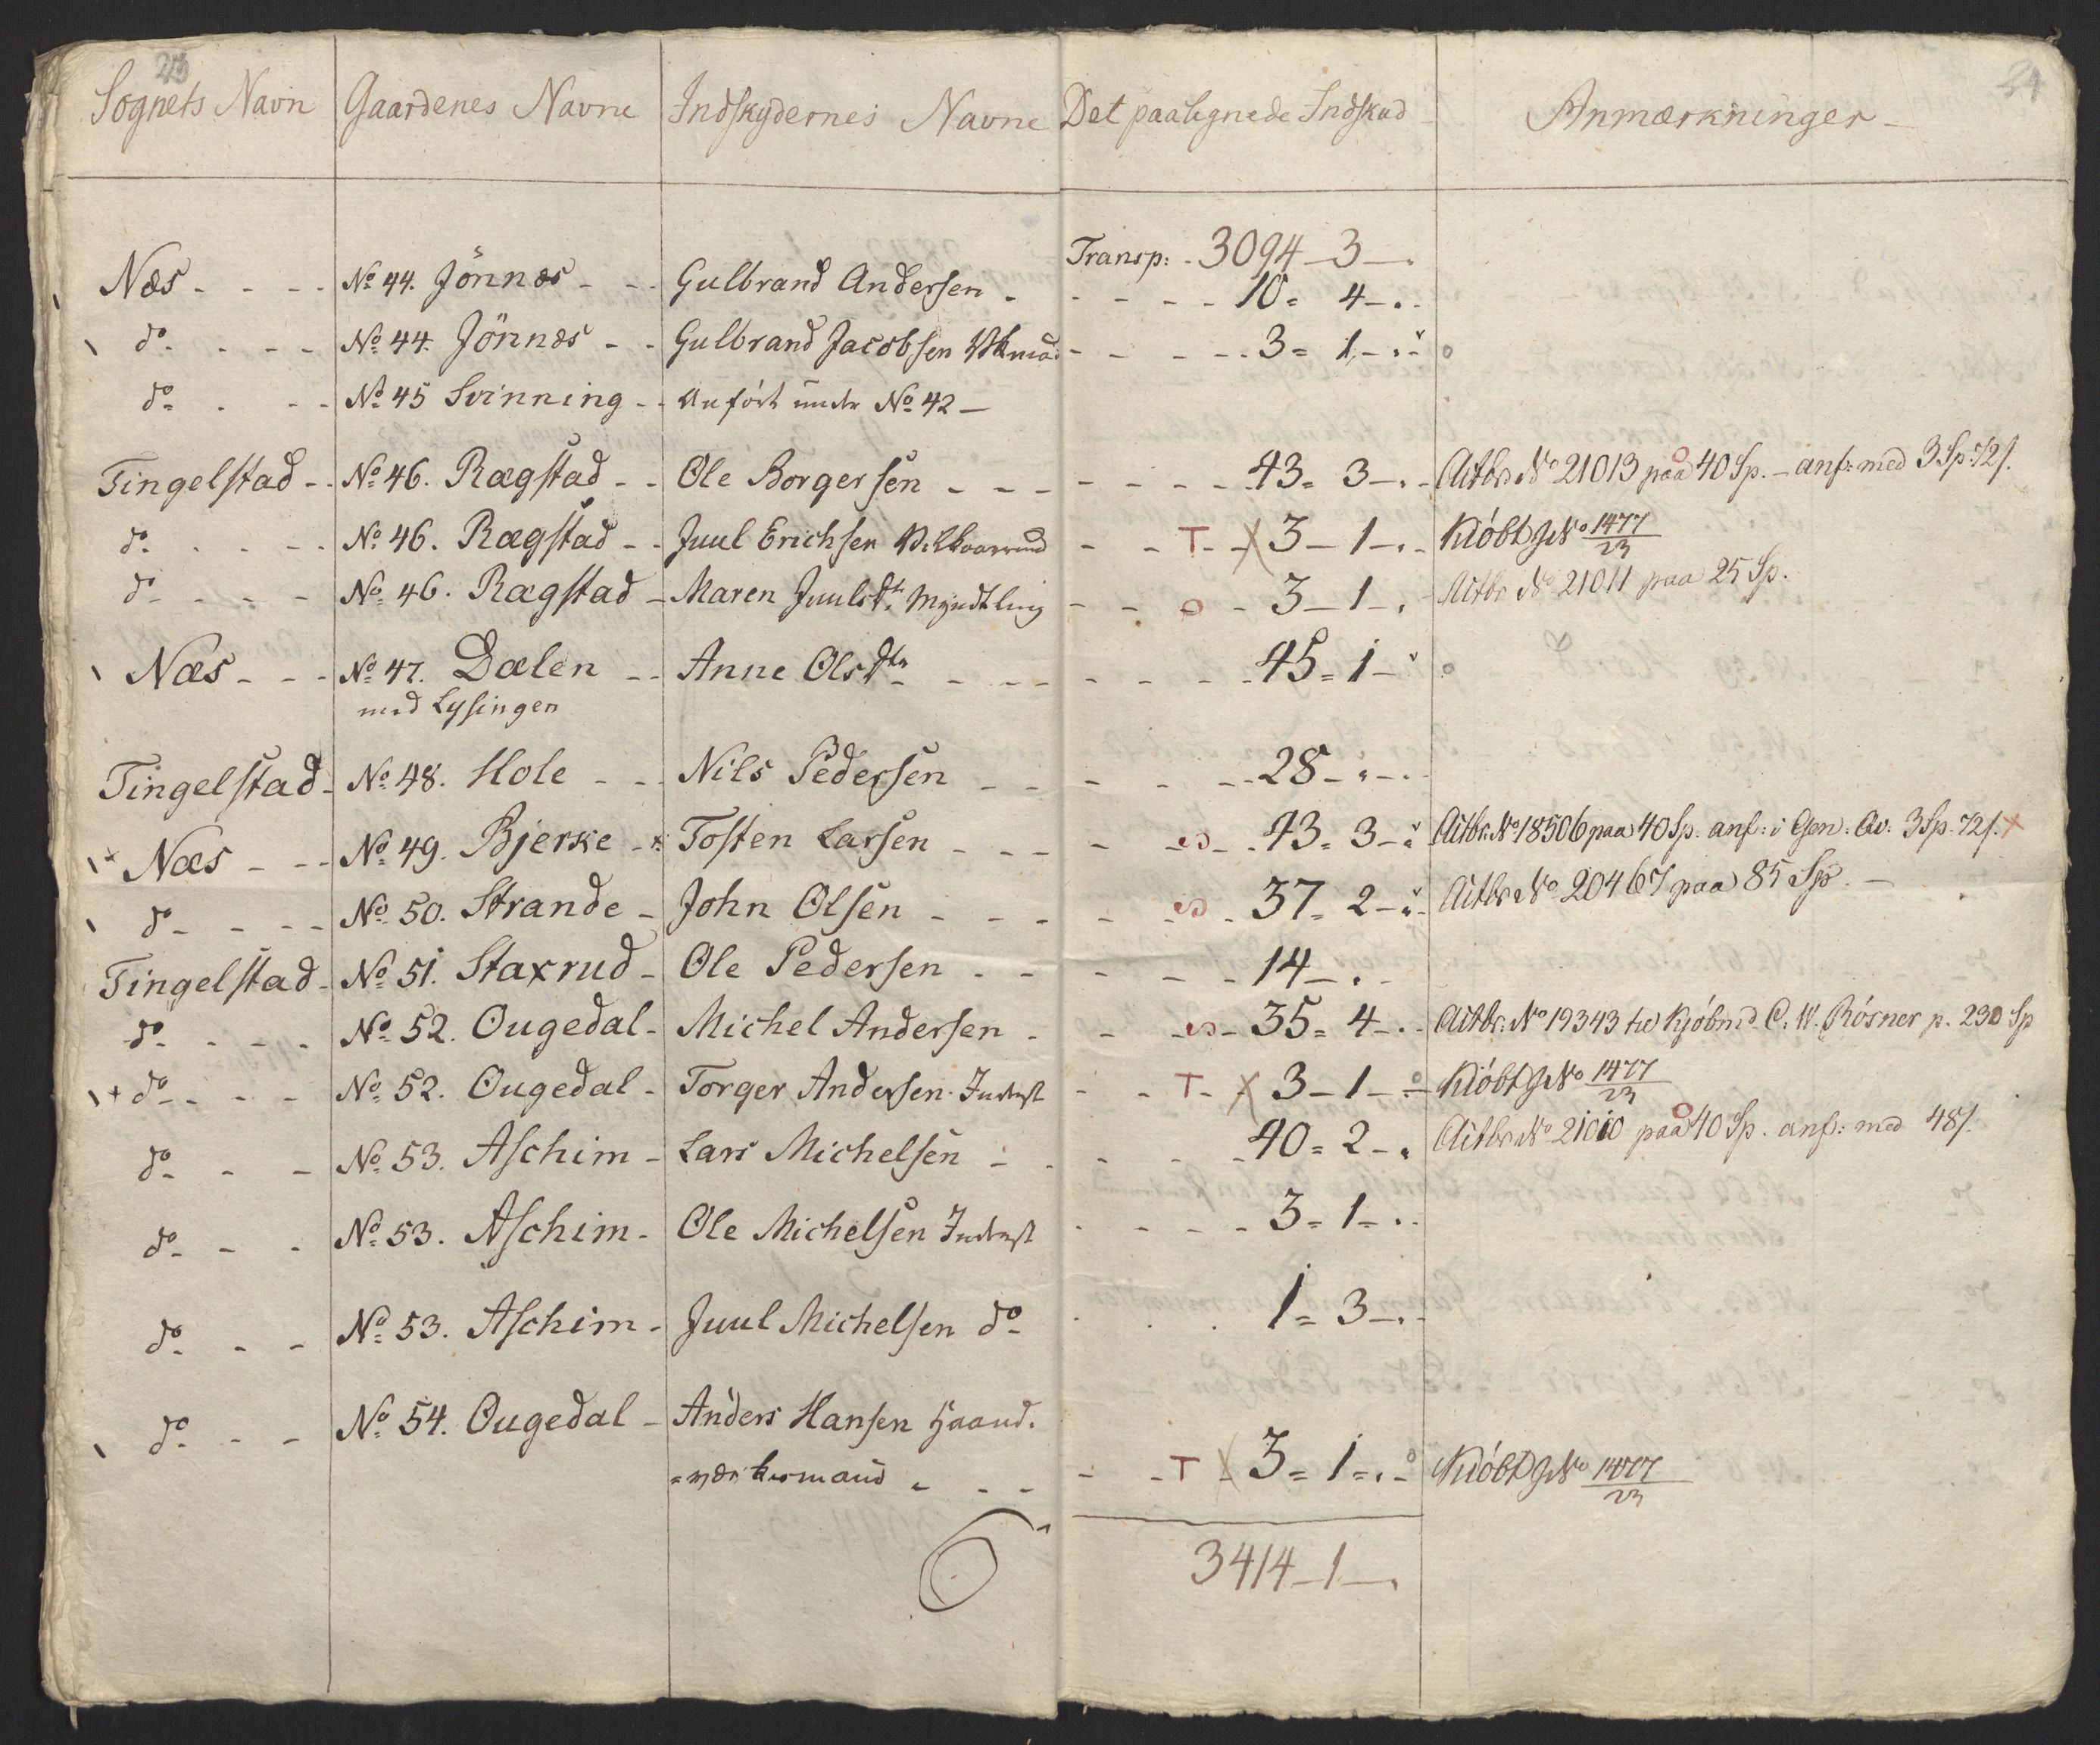 23
24
Sognets Navn Gaardenes Navne Indskydernes Navne Det paalignede Indskud Anmærkninger
Transp: 3094 - 3 - .
Næs - - - - No 44. Jönnæs - - Gulbrand Andersen - - - - - 10 = 4 - . -
do - - - - No 44. Jönnæs - - Gulbrand Jacobsen - - - - - 3 = 1 - . -
do - - - No 45 Svinning - - Anfört under No 42 -
Tingelstad - - No 46. Rægstad - - Ole Borgersen - - - - - - 43 = 3 - . - Actbr. No 21013 paa 40 Sp. - anf: med 3 Sp: 72 s.
do - - - - No 46. Rægstad - - Juul Erichsen - - T - X 3 - 1 - . - Kióbt GNo 1477/23
do - - - - No 46. Rægstad - Maren Juulsdtr Myndtling - - o - 3 - 1 - . - Actbr No 21011 paa 25 Sp.
Næs - - - No 47. Dælen - - Anne Olsdtr - - - - - - 45 = 1 -
med Lysingen
Tingelstad - No 48. Hole - - Nils Pedersen - - - - - 28 - . - .
Næs - - - No 49. Bjerke - Tosten Larsen - - - - 43 = 3 - Actbr. No 18506 paa 40 Sp. anf: i Gen: Qv: 3 Sp. 72 s. X
do - - - - No 50. Strande - John Olsen - - - - 37 = 2 - Actbr No 20467 paa 85 Sp. -
Tingelstad - No 51. Staxrud - Ole Pedersen - - - - - 14 - .
do - - - - No 52. Ougedal - Michel Andersen - - - 35 = 4 - . - Actbr: No 19343 til Kjóbmd. C. W. Rósner p. 230 Sp
+ do - - - - No 52. Ougedal - Torger Andersen Inderst - - T - X 3 - 1 - Kióbt GNo 1477/23
do - - - No 53. Aschim - Lars Michelsen - - - - - 40 = 2 - . Actbr No 21010 paa 40 Sp. anf: med 48 s.
do - - - No 53. Aschim - Ole Michelsen Inderst - - - - 3 = 1 - . -
do - - - No 53. Aschim - Juul Michelsen do - - - 1 = 3 - . -
do - - - No 54. Ougedal - Anders Hansen Haand-
=værksmand - - - - - T X 3 = 1 = . - Kióbt GNo 1477/23
3414 - 1 - .